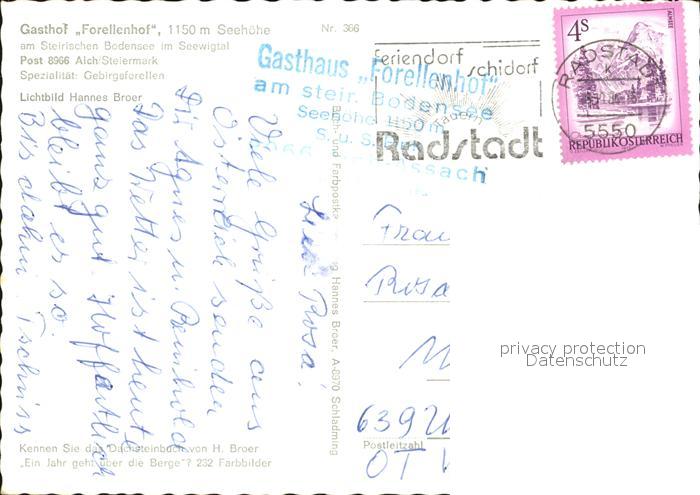 Gasthof „Forellenhof", 1150 m Seehöhe
am Steirischen Bodensee im Seewigtal
Post 8966 Aich/Steiermark
Spezialität: Gebirgsforellen
Lichtbild Hannes Broer
Nr. 366
Gasthaus „Forellenhof"
am steir. Bodensee
Seehöhe 1150m
feriendorf
schidorf
Radstadt
4S
RADSTADT
5550
REPUBLIK ÖSTERREICH
Liebe Rosa!
Viele Grüße aus
Österreich senden
Dir Agnes u. Reinhold
Das Wetter ist heute
ganz gut. Hoffentlich
bleibt es so.
Bis dahin. Tschüss
Hannes Broer, A-8970 Schladming
Frau
Rosa
M
639
Postleitzahl
OT
privacy protection
Datenschutz
Kennen Sie das Dachsteinbuch von H. Broer
„Ein Jahr geht über die Berge"? 232 Farbbilder